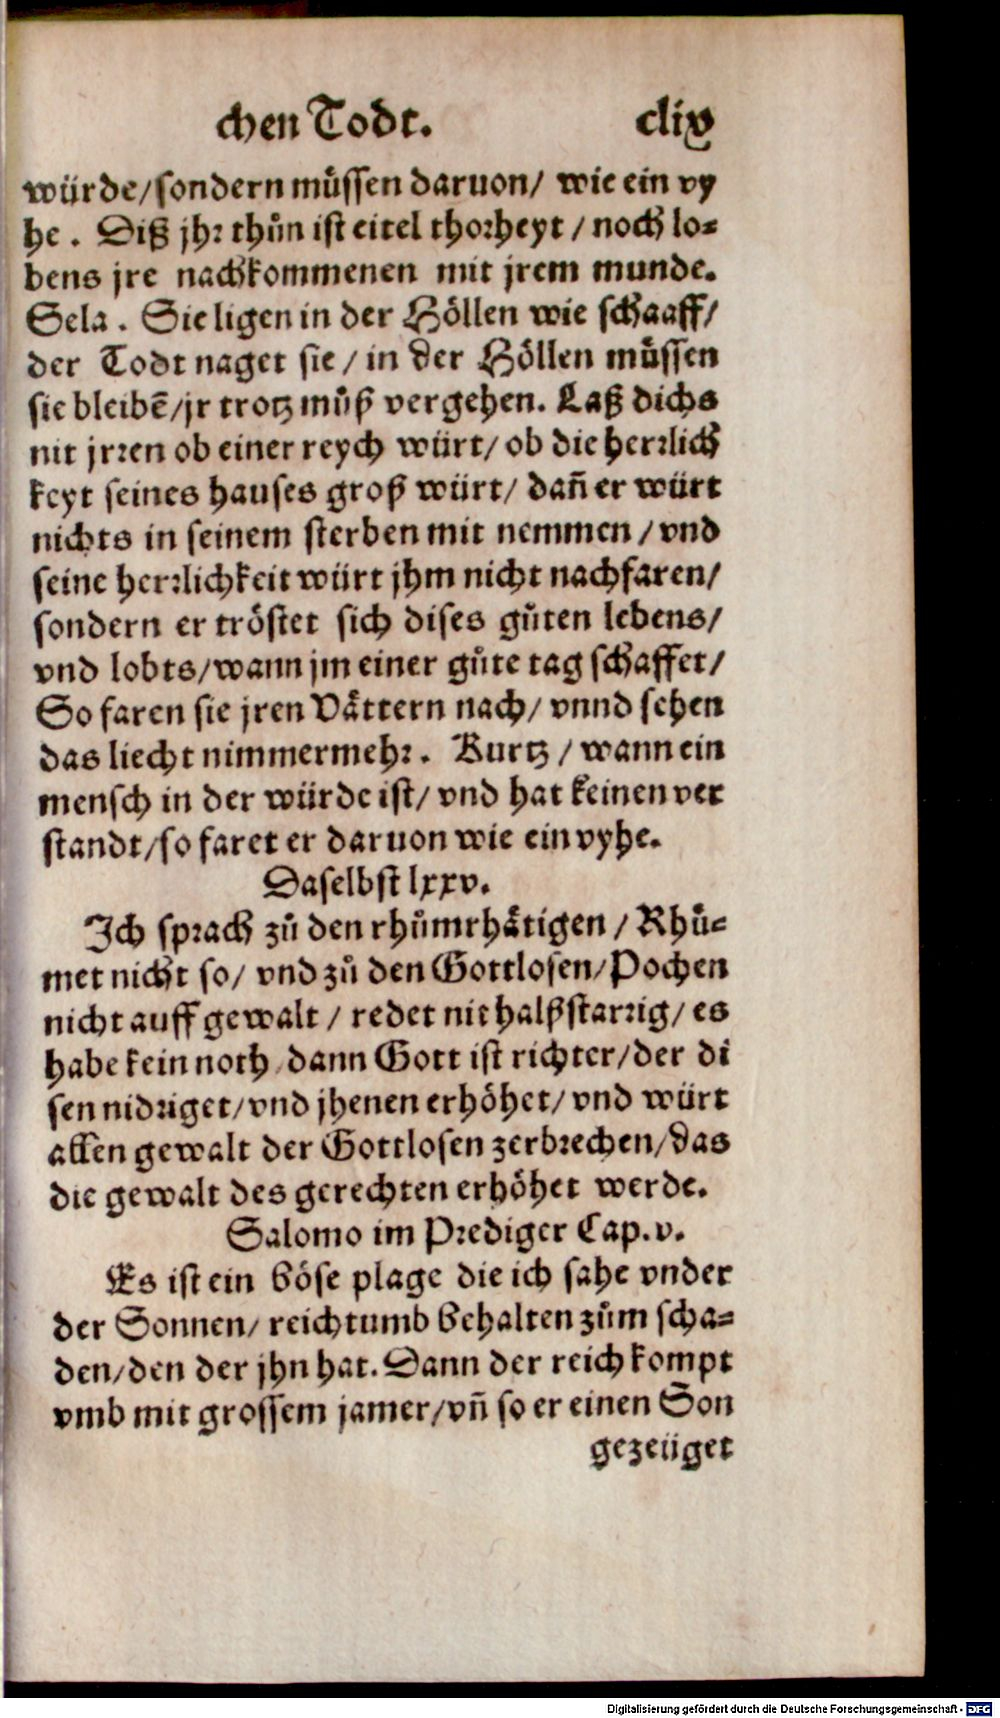 chen Todt. clix
würde/sondern müssen daruon/ wie ein vy
he. Diß jhr thůn ist eitel thorheyt / noch lo-
bens jre nachkommenen mit jrem munde.
Sela. Sie ligen in der Höllen wie schaaff/
der Todt naget sie / in der Höllen müssen
sie bleibẽ/jr trotz můß vergehen. Laß dichs
nit jrren ob einer reych würt/ ob die herrlich
keyt seines hauses groß würt/ dañ er würt
nichts in seinem sterben mit nemmen / vnd
seine herrlichkeit würt jhm nicht nachfaren/
sondern er tröstet sich dises gůten lebens/
vnd lobts/wann jm einer gůte tag schaffet/
So faren sie jren Vättern nach/ vnnd sehen
das liecht nimmermehr. Kurtz / wann ein
mensch in der würde ist/ vnd hat keinen ver
standt/so faret er daruon wie ein vyhe.
Daselbst lxxv.
Ich sprach zů den rhůmrhätigen / Rhů-
met nicht so/ vnd zů den Gottlosen/Pochen
nicht auff gewalt / redet nit halßstarrig/ es
habe kein noth/dann Gott ist richter/der di
sen nidriget/vnd jhenen erhöhet/ vnd würt
allen gewalt der Gottlosen zerbrechen/das
die gewalt des gerechten erhöhet werde.
Salomo im Prediger Cap. v.
Es ist ein böse plage die ich sahe vnder
der Sonnen/ reichtumb behalten zům scha-
den/den der jhn hat. Dann der reich kompt
vmb mit grossem jamer/vñ so er einen Son
gezeüget
Digitalisierung gefördert durch die Deutsche Forschungsgemeinschaft - DFG